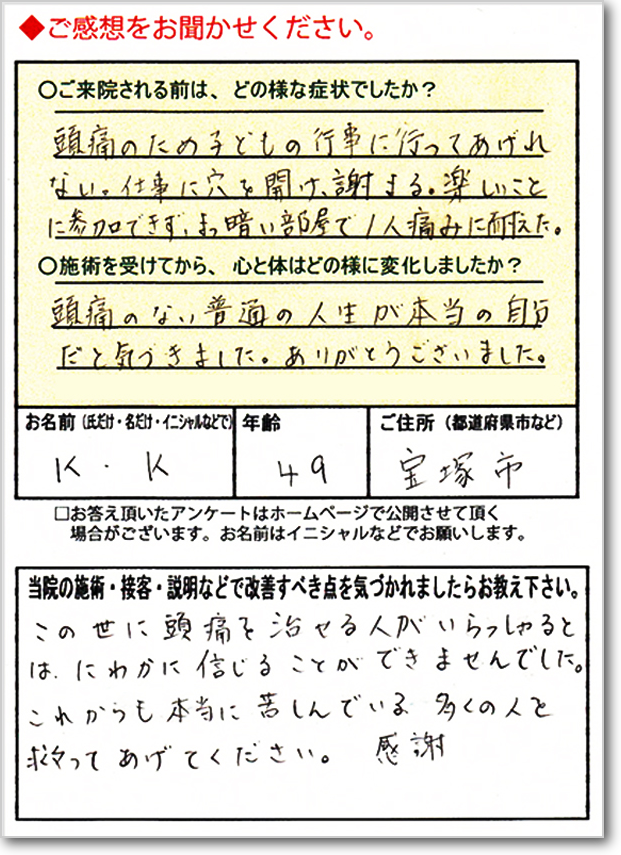 ◆ご感想をお聞かせください。
○ご来院される前は、どの様な症状でしたか？
頭痛のため子どもの行事に行ってあげれ
ない。仕事に穴を開け、謝まる。楽しいこと
に参加できず、まっ暗い部屋で1人痛みに耐えた。
○施術を受けてから、心と体はどの様に変化しましたか？
頭痛のない普通の人生が本当の自分
だと気づきました。ありがとうございました。
お名前（氏だけ・名だけ・イニシャルなどで） 年齢 ご住所（都道府県市など）
K・K 49 宝塚市
□お答え頂いたアンケートはホームページで公開させて頂く
場合がございます。お名前はイニシャルなどでお願いします。
当院の施術・接客・説明などで改善すべき点を気づかれましたらお教え下さい。
この世に頭痛を治せる人がいらっしゃると
は、にわかに信じることができませんでした。
これからも本当に苦しんでいる多くの人を
救ってあげてください。 感謝